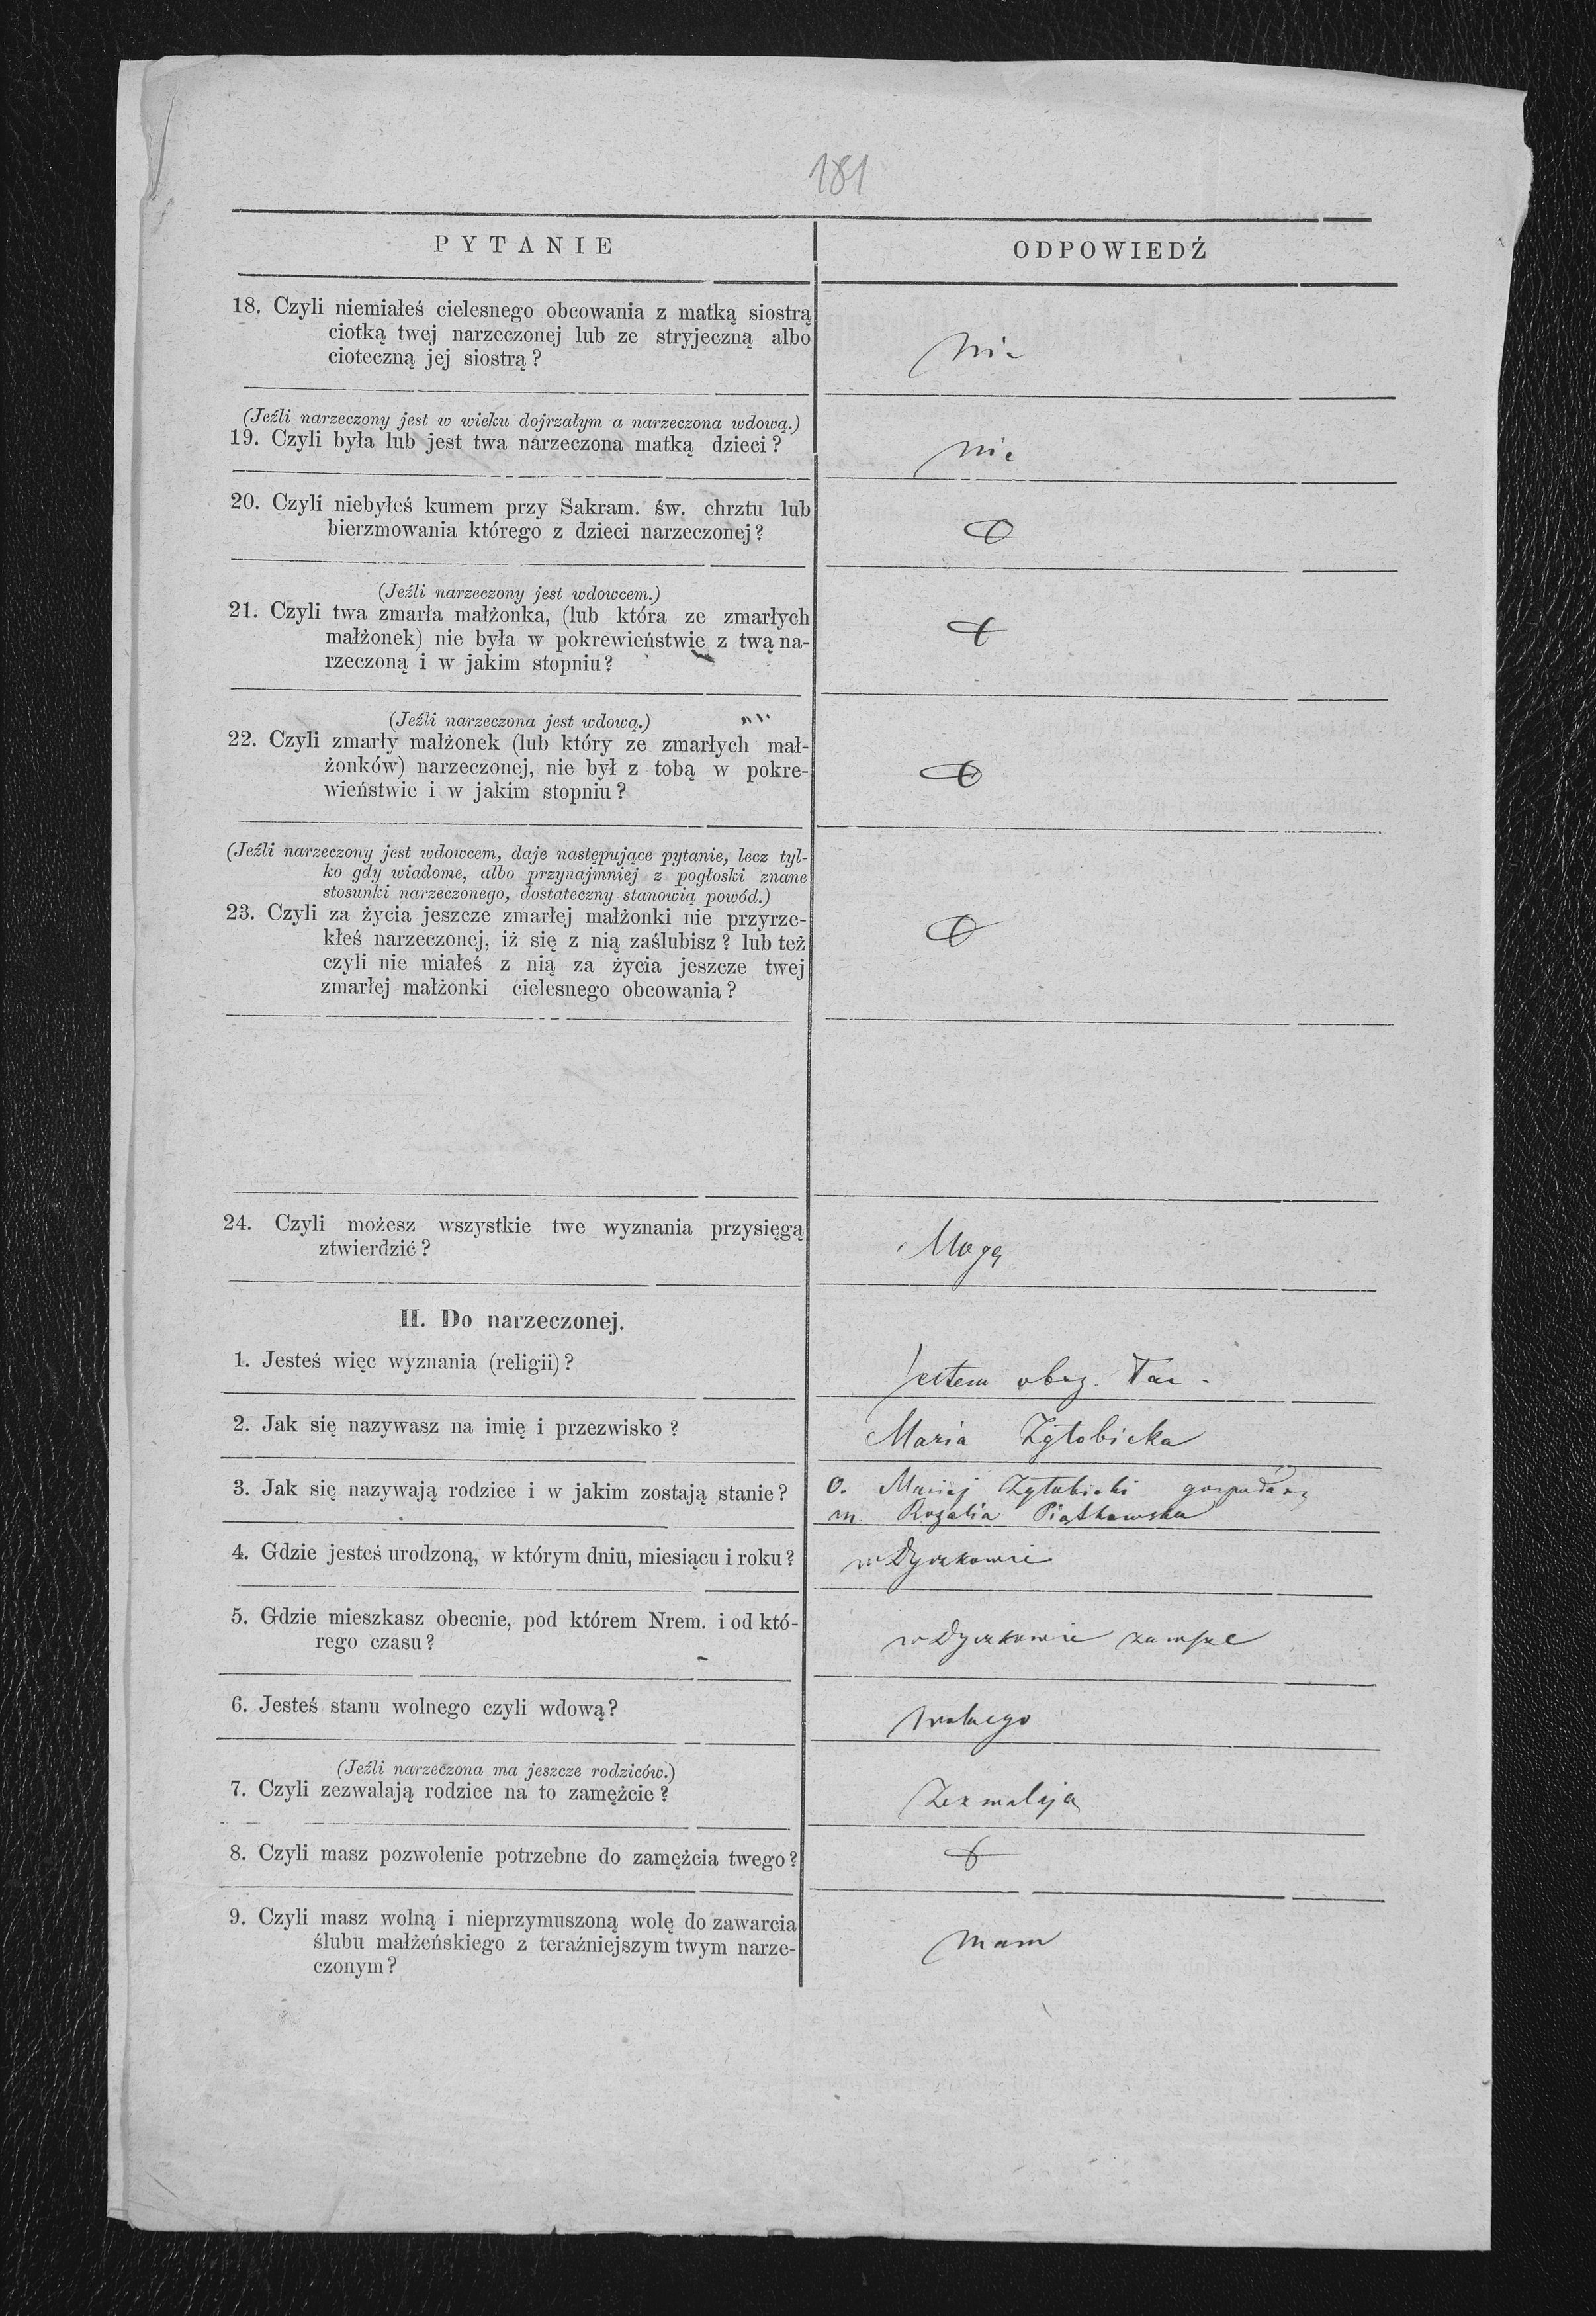 181
PYTANIE
ODPOWIEDŹ
18. Czyli niemiałeś cielesnego obcowania z matką siostrą
ciotką twej narzeczonej lub ze stryjeczną albo
cioteczną jej siostrą?
nie
(Jeźli narzeczony jest w wieku dojrzałym a narzeczona wdową.)
19. Czyli była lub jest twa narzeczona matką dzieci?
nie
20. Czyli niebyłeś kumem przy Sakram. św. chrztu lub
bierzmowania którego z dzieci narzeczonej?
(Jeźli narzeczony jest wdowcem.)
21. Czyli twa zmarła małżonka, (lub która ze zmarłych
małżonek) nie była w pokrewieństwie z twą na-
rzeczoną i w jakim stopniu?
(Jeźli narzeczona jest wdową.)
22. Czyli zmarły małżonek (lub który ze zmarłych mał-
żonków) narzeczonej, nie był z tobą w pokre-
wieństwie i w jakim stopniu?
(Jeźli narzeczony jest wdowcem, daje następujące pytanie, lecz tyl-
ko gdy wiadome, albo przynajmniej z pogłoski znane
stosunki narzeczonego, dostateczny stanowią powód.)
23. Czyli za życia jeszcze zmarłej małżonki nie przyrze-
kłeś narzeczonej, iż się z nią zaślubisz? lub też
czyli nie miałeś z nią za życia jeszcze twej
zmarłej małżonki cielesnego obcowania?
24. Czyli możesz wszystkie twe wyznania przysięgą
ztwierdzić?
Mogę
II. Do narzeczonej.
1. Jesteś więc wyznania (religii)?
Jestem obrz. łac.
2. Jak się nazywasz na imię i przezwisko?
Maria Zgłobicka
3. Jak się nazywają rodzice i w jakim zostają stanie?
O. Maciej Zgłobicki gospodarz
m. Rozalia Piątkowska
4. Gdzie jesteś urodzoną, w którym dniu, miesiącu i roku?
w Dyczkowie
5. Gdzie mieszkasz obecnie, pod którem Nrem. i od któ-
rego czasu?
w Dyczkowie zawsze
6. Jesteś stanu wolnego czyli wdową?
wolnego
(Jeźli narzeczona ma jeszcze rodziców.)
7. Czyli zezwalają rodzice na to zamężcie?
Zezwalają
8. Czyli masz pozwolenie potrzebne do zamężcia twego?
9. Czyli masz wolną i nieprzymuszoną wolę do zawarcia
ślubu małżeńskiego z teraźniejszym twym narze-
czonym?
mam